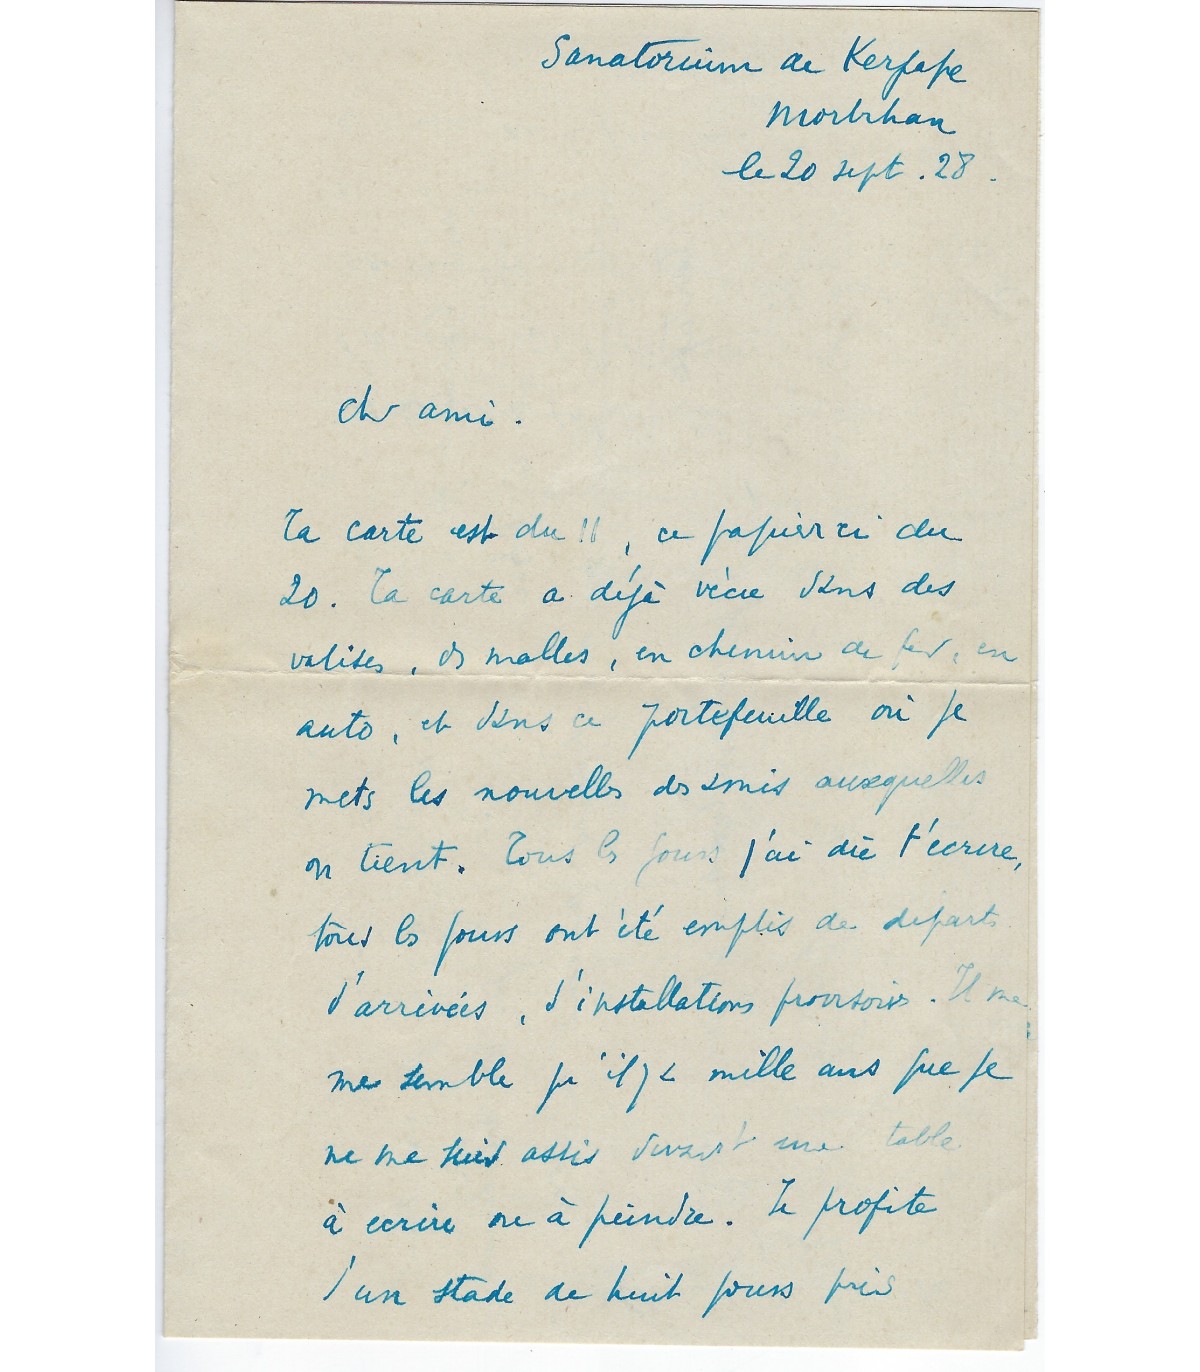 Sanatorium de Kerpape
Morbihan
le 20 sept. 28.
Cher ami.
Ta carte est du 11, ce papier ci du
20. Ta carte a déjà vécu dans des
valises, des malles, en chemin de fer, en
auto, et dans ce portefeuille où je
mets les nouvelles des amis auxquelles
on tient. Tous les jours j'ai dû t'écrire,
tous les jours ont été emplis de départs
d'arrivées, d'installations provisoires. Il me
me semble qu'il y a mille ans que je
ne me suis assis devant une table
à écrire ou à peindre. Je profite
d'un stade de huit jours près